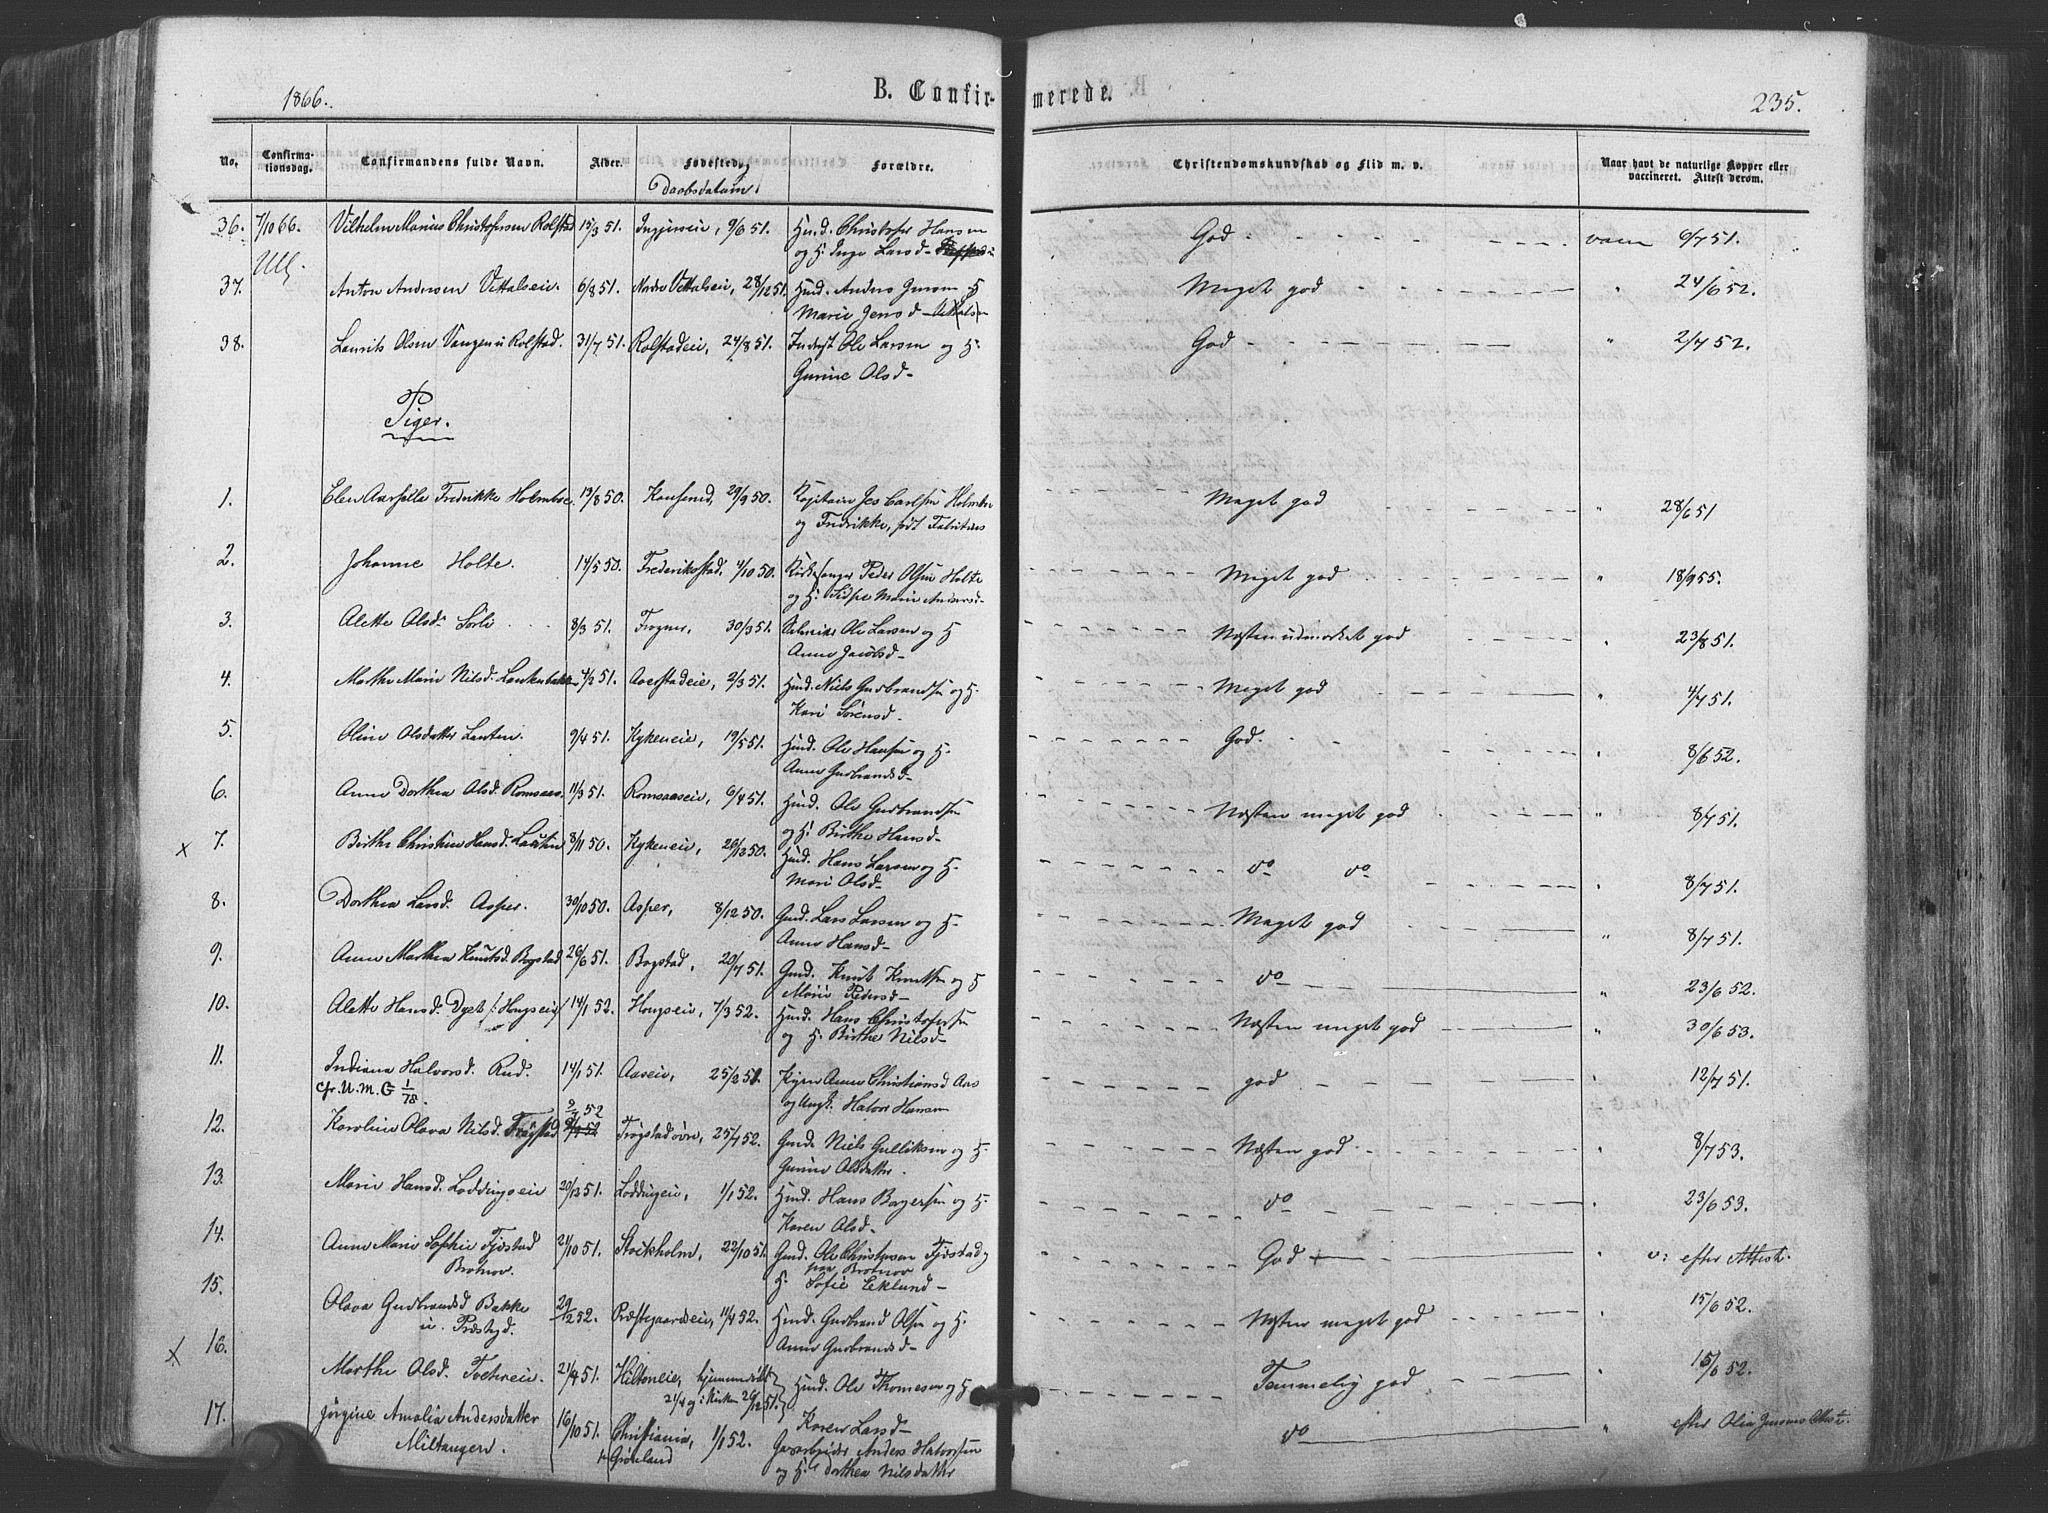 1866.
B. Confirmerede.
235.
No. Confirmationsdag. Confirmandens fulde Navn. Alder. Fødested og Daabsdatum. Forældre. Christendomskundskab og Flid m. v. Naar havt de naturlige Kopper eller vaccineret. Attest derom.
36. 7/10 66. Vilhelm Marius Christofersen Rolstad 15/3 51. 9/6 51. Husd. Christofer Hansen God vacc 6/7 51.
og H. Inge Larsd
37. Anton Andersen Vittalseie. 6/8 51. Nedre Vittalseie, 28/12 51. Husd. Anders Jensen H Meget god " 24/6 52.
Marie Jensd
38. Laurits Olsen Vangen u Rolstad. 31/7 51. Rolstadeie, 24/8 51. Inderst Ole Larsen og H. God " 2/7 52.
Gurine Olsd
Piger.
1. Elen Fredrikke Holmboe. 13/8 50. 29/9 50. Kapitain Jes Carlsen Holmboe Meget god " 28/6 51
og Fredrikke, født Fabritius
2. Johanne Holte. 14/5 50. Frederikstad, 4/10 50. Kirkesanger Peder Olsen Holte Meget god " 18/9 55.
og H. Marie Andersd
3. Alette Olsdr Sørli 8/3 51. Frogner, 30/3 51. Ole Larsen og H Næsten udmærket god " 23/8 51.
Anne Jacobsd
4. Marthe Marie Nilsd. 4/2 51. Aaerstadeie, 2/3 51. Husd. Niels Gudbrandsen og H. Meget god " 4/7 51.
Kari Sørensd.
5. Oline Olsdatter Lauten. 9/4 51. Kykeneie, 19/5 51. Husd. Ole Hansen og H. God. " 8/6 52.
Anne Gudbrandsd
6. Anne Dorthea Olsd. Romsaas. 11/3 51. Romsaaseie, 6/4 51. Husd. Ole Gudbrandsen Næsten meget god " 8/7 51.
og H. Birthe Hansd
x 7. Birthe Christine Hansd. Lauten 8/11 50. Kykeneie, 26/12 50. Husd. Hans Larsen og H. do do " 8/7 51.
Mari Olsd
8. Dorthea Larsd. Asper. 30/10 50. Asper, 8/12 50. Gmd. Lars Larsen og H. Meget god " 8/7 51.
Anne Hansd
9. Anne Marthea Knutsd. Bogstad 26/6 51. Bogstad, 20/7 51. Gmd. Knut Knutsen og H do " 23/6 52.
Marie Pedersd
10. Alette Hansd. Dyst /: Hougseie/ 14/1 52. Hougseie, 7/3 52. Husd. Hans Christofersen Næsten meget god " 30/6 53.
og H. Birthe Nilsd
11. Indiana Halvorsd. Rud. 14/1 51. Aaseie, 25/2 51. Anne Christiansd Aas god " 12/7 51.
cfr. U. M. G 1/78. og Ungk. Halvor Hansen
12. Karoline Olava Nilsd. Frøgstad 2/7 52 Frøgstadøvre, 25/7 52. Gmd. Niels Gulliksen og H. Næsten god " 8/7 53.
Gunine Olsdatter.
13. Marie Hansd. Loddingseie 20/12 51. Loddingeie, 1/1 52. Husd. Hans Børgersen og H. do " 23/6 53.
Karen Olsd
14. Anne Marie Sophie Fjøstad 21/10 51. Stokholm, 22/10 51. Gmd. Ole Christensen Fjøstad og God " v: efter Attest.
Brotnov. paa Brotnov
H. Sofie Eklund
15. Olava Gudbrandsd Bakke 29/2 52. Præstegaardseie, 11/4 52. Husd. Gudbrand Olsen og H. Næsten meget god " 15/6 52.
u. Præstgd. Anne Gudbrandsd
x 16. Marthe Olsd. 21/4 51. Hiltoneie, hjemmedøbt Husd. Ole Thomesen og H Temmelig god " 15/6 52.
21/4 og i Kirken 26/12 51. Karen Larsd
17. Jørgine Amalia Andersdatter 16/10 51. Christiania, 1/1 52. Anders Halvorsen do " efter Olia Jensens Attest.
Miltangen. Grønland og H. Dorthea Nilsdatter